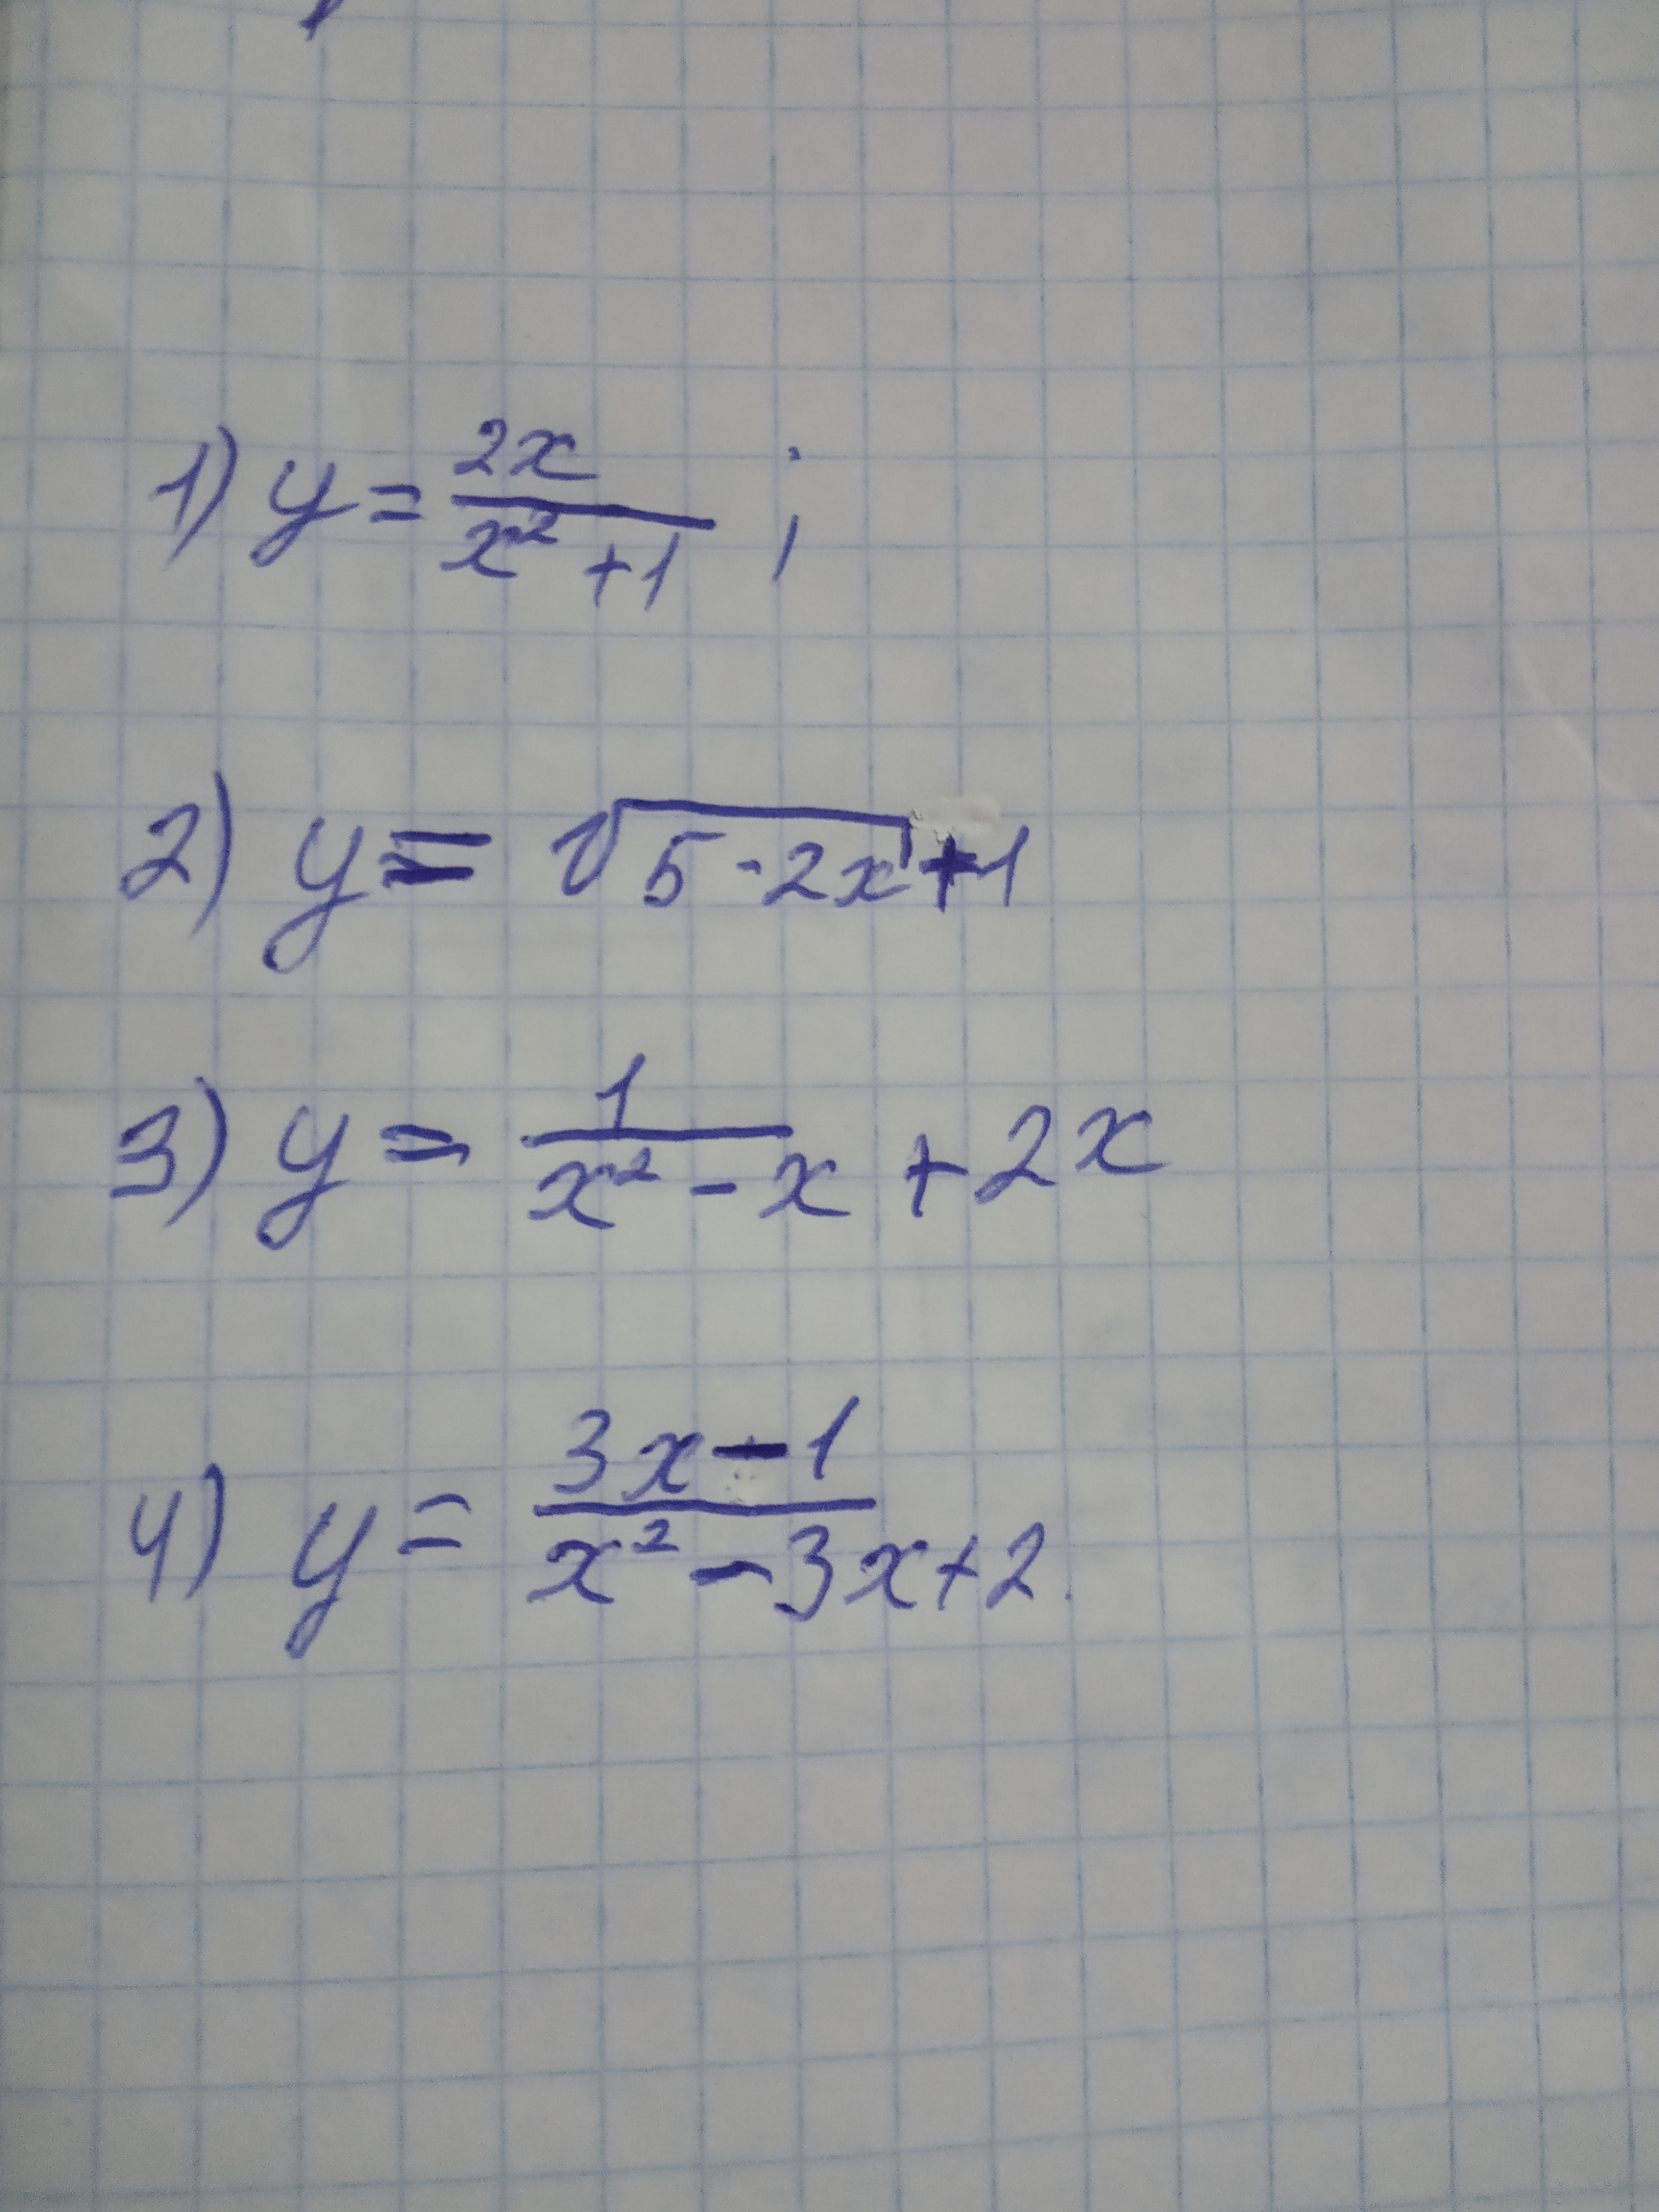 1) y = 2x / (x² + 1) ;
2) y = √(5 - 2x) + 1
3) y = 1 / (x² - x) + 2x
4) y = (3x - 1) / (x² - 3x + 2).